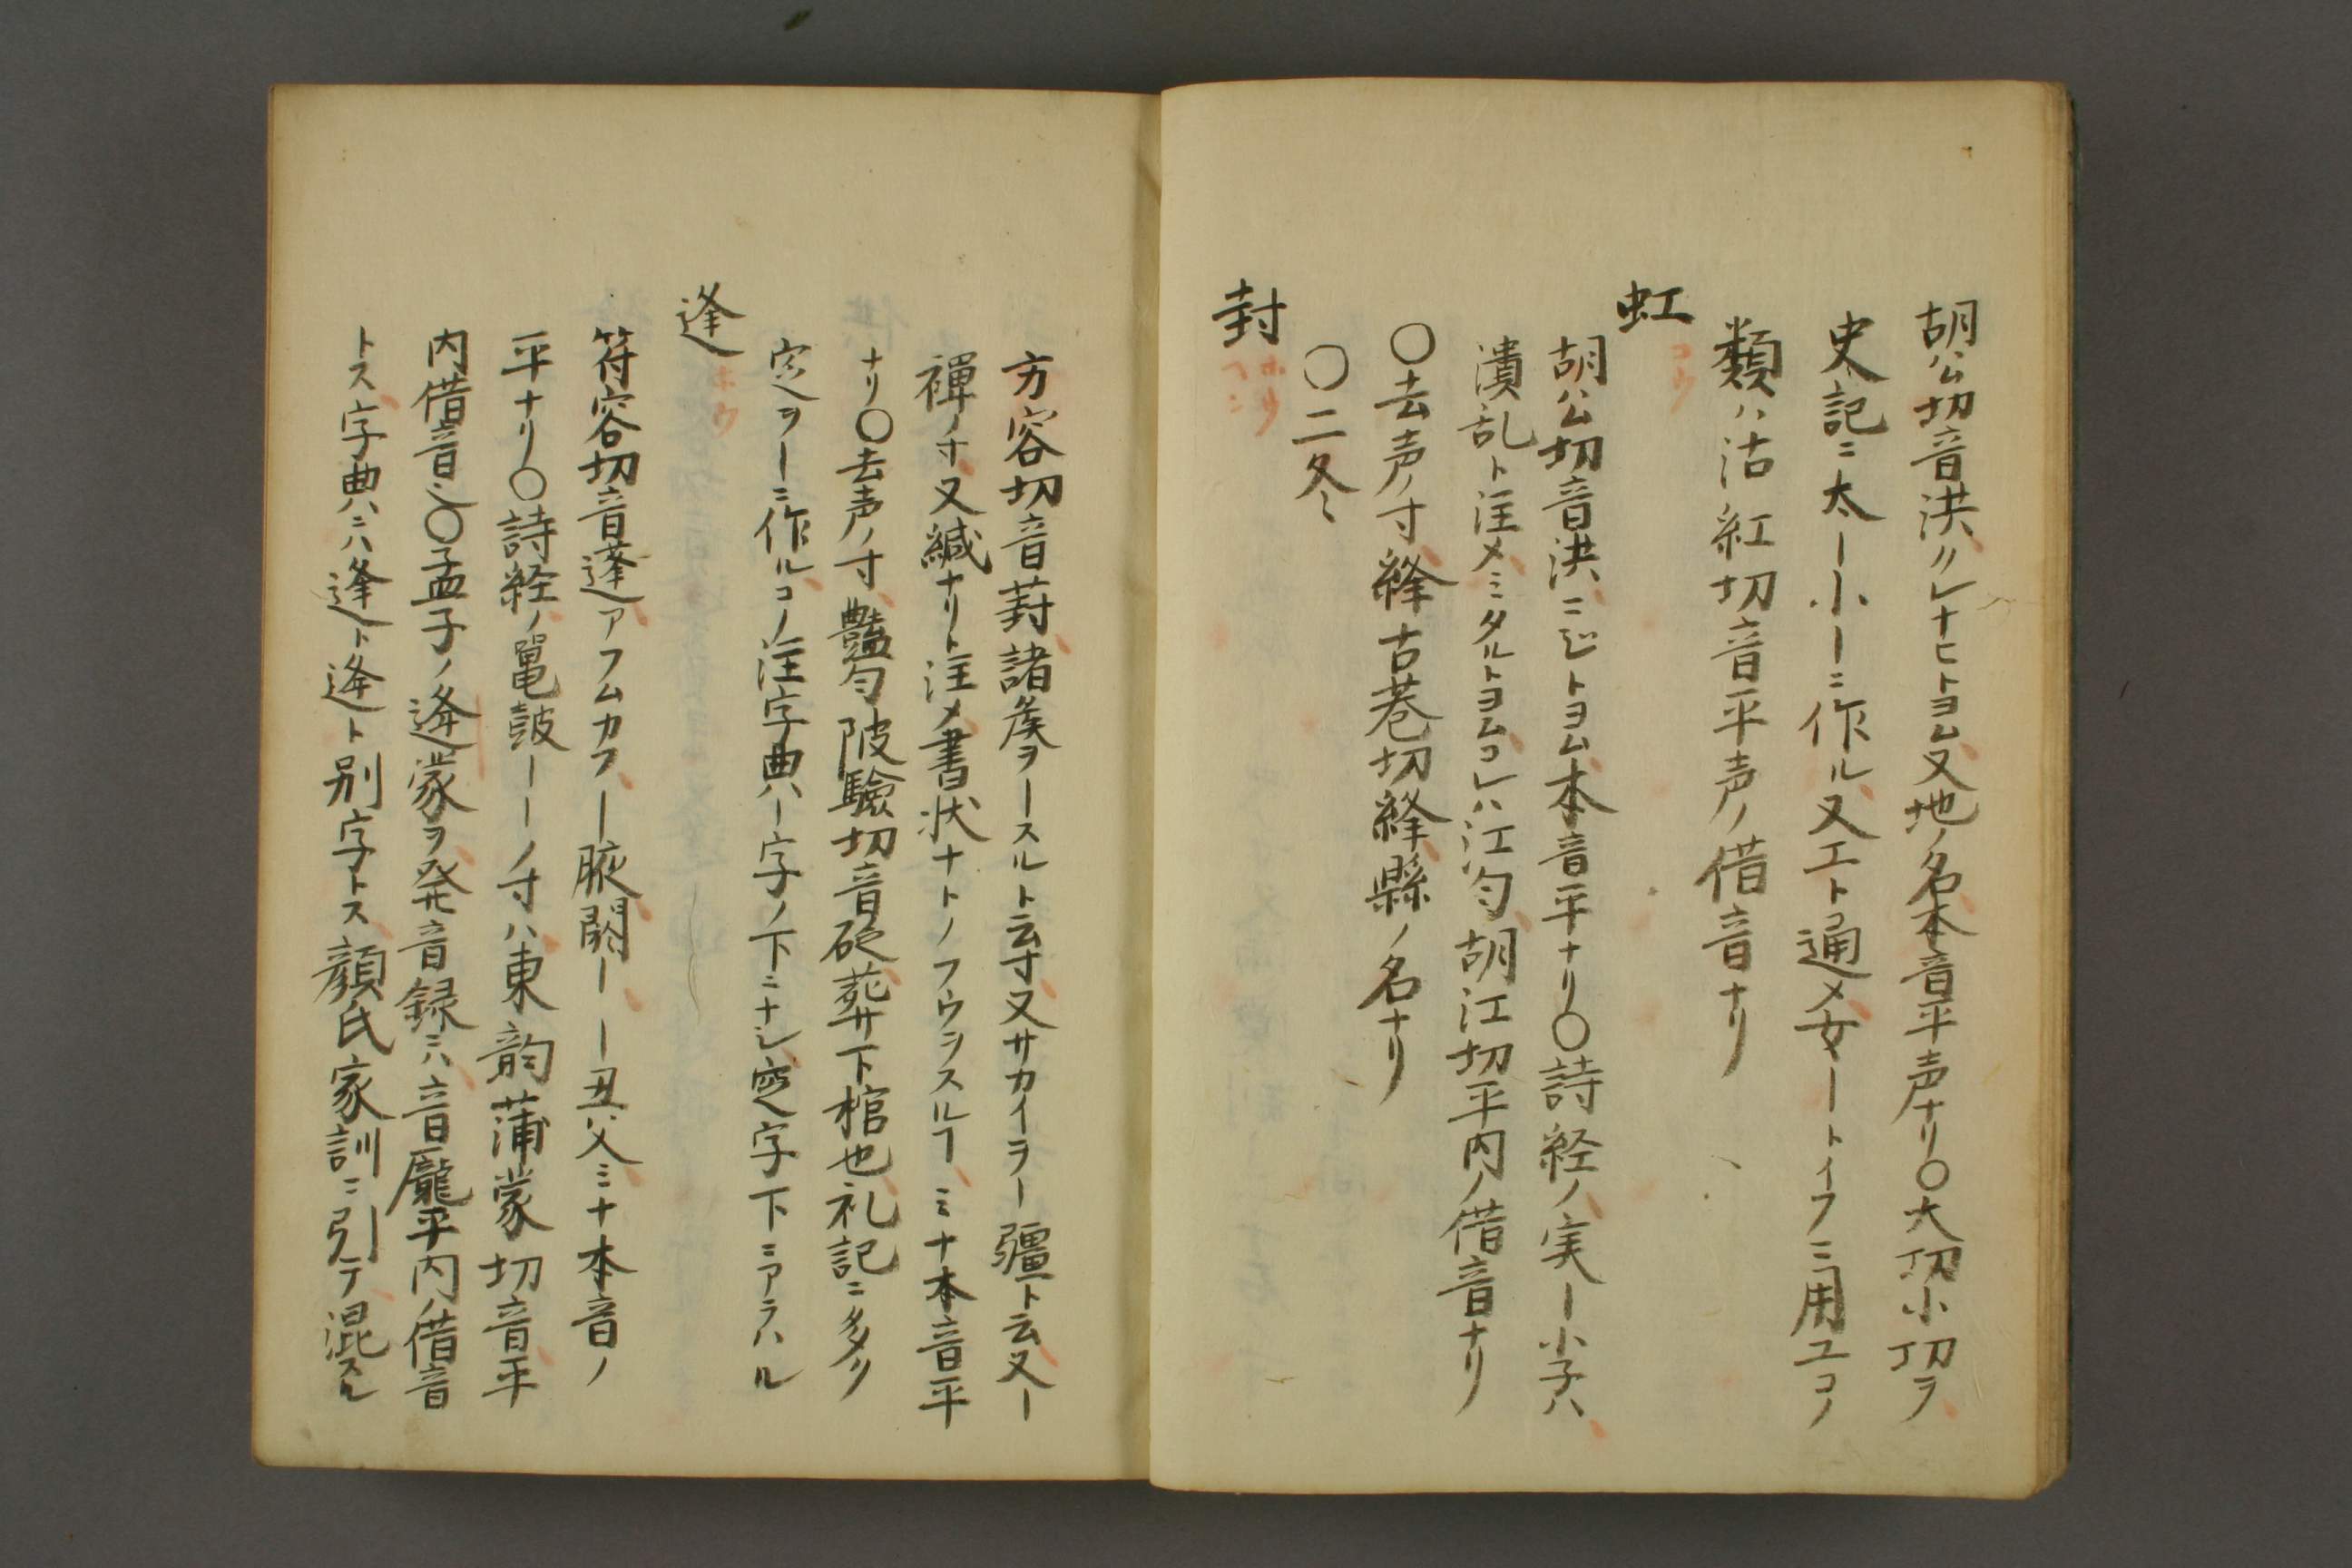 胡公切音洪クレナヒトヨム又地ノ名本音平声ナリ○大功小功ヲ
史記ニ太ー小ーニ作ル又工ト通メ女ートイフニ用ユコノ
類ハ沽紅切音平声ノ借音ナリ
虹 コウ
胡公切音洪ニジトヨム本音平ナリ○詩経ノ実ー小子ハ
潰乱ト注メミタルトヨムコレハ江匀胡江切平内ノ借音ナリ
○去声ノ寸絳古巷切絳縣ノ名ナリ
○二冬
封 ホウ
方容切音葑諸侯ヲースルト云寸又サカイヲー疆ト云又ー
禅ノ寸又緘ナリト注メ書状ナトノフウヲスルヿミナ本音平
ナリ○去声ノ寸豔匀陂驗切音砭葬サ下棺也礼記ニ多ク
窆ヲーニ作ルコノ注字典ハー字ノ下ニナシ窆字下ニアラハル
逢 ホウ
符容切音蓬アフムカフー腋閼ーー丑父ミナ本音ノ
平ナリ○詩経ノ鼍鼓ーーノ寸ハ東韵蒲蒙切音平
内借音也○孟子ノ逄蒙ヲ発音録ニハ音龐平内ノ借音
トス字典ハニハ逢ト逄ト別字トス顔氏家訓ニ引テ混スル